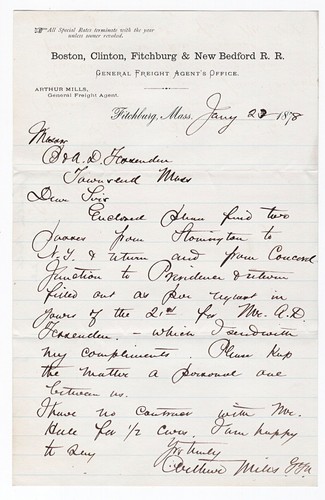 All Special Rates terminate with the year
unless sooner revoked.
Boston, Clinton, Fitchburg & New Bedford R. R.
GENERAL FREIGHT AGENT'S OFFICE.
ARTHUR MILLS,
General Freight Agent.
Fitchburg, Mass. Jany 23 1878
Messrs
B & A. D. Fessenden
Townsend Mass
Dear Sirs
Enclosed please find two
passes from Stonington to
N.Y. & return and from Concord
Junction to Providence & return
filled out as per request in
yours of the 21st for Mr. A.D.
Fessenden. - which I send with
my compliments. Please keep
the matter a personal one
between us.
I have no contract with Mr.
Hale for 1/2 cars. I am happy
to say
Yrs truly
Arthur Mills